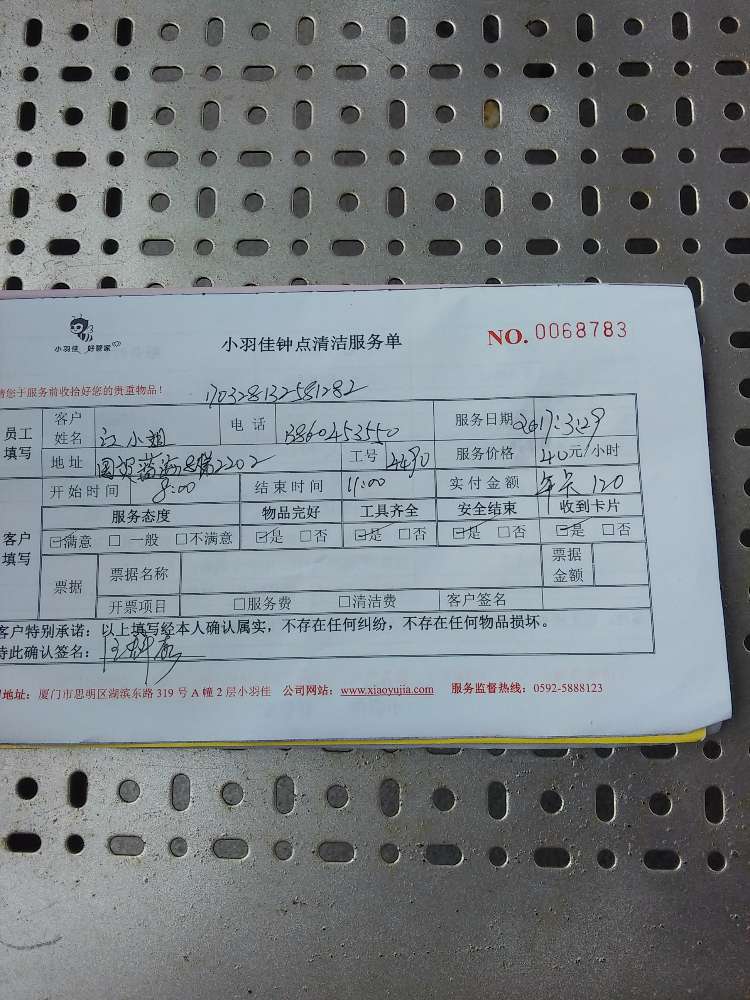 小羽佳 好管家
小羽佳钟点清洁服务单
NO. 0068783
请您于服务前收拾好您的贵重物品！
170328132581282
员工填写 客户姓名 江小姐 电话 13860453550 服务日期 2017:3:29
地址 国贸蓝海 2202 工号 4490 服务价格 40元/小时
开始时间 8:00 结束时间 11:00 实付金额 年卡 120
客户填写 服务态度 物品完好 工具齐全 安全结束 收到卡片
☑满意 □一般 □不满意 ☑是 □否 ☑是 □否 ☑是 □否 ☑是 □否
票据 票据名称 票据金额
开票项目 □服务费 □清洁费 客户签名
客户特别承诺：以上填写经本人确认属实，不存在任何纠纷，不存在任何物品损坏。
特此确认签名：
地址：厦门市思明区湖滨东路 319 号 A 幢 2 层小羽佳 公司网站：www.xiaoyujia.com 服务监督热线：0592-5888123